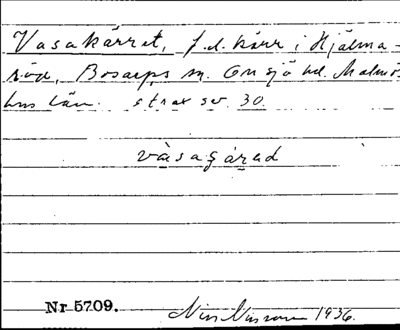 Vasakärret, f.d. kärr i Hjälma-
röd, Bosarps sn. Onsjö hd. Malmö-
hus län. strax sv. 30.
vàsagárad
Nr 5709.
Nils Nilsson 1936.